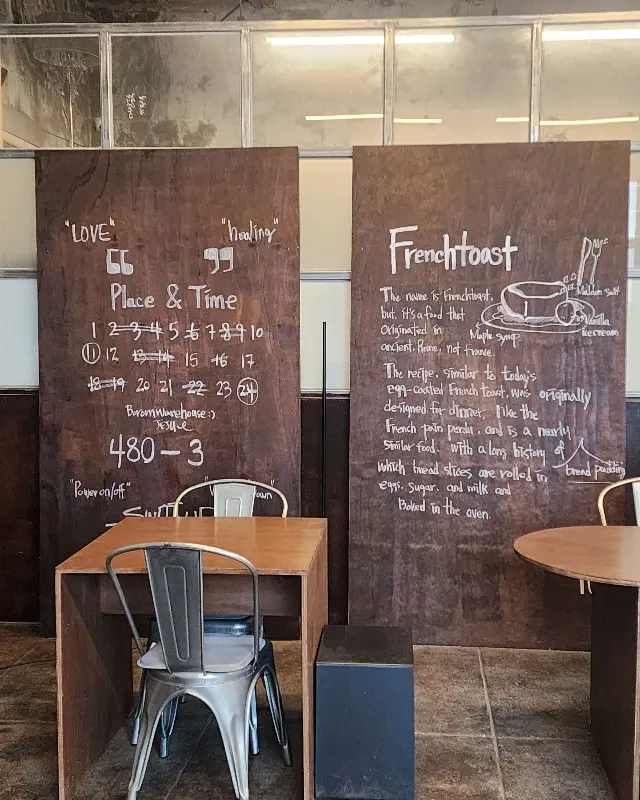 "LOVE" "healing"
Place & Time
1 2 3 4 5 6 7 8 9 10
11 12 13 14 15 16 17
18 19 20 21 22 23 24
Buromwarehouse:)
480-3
"Power on/off"
Frenchtoast
The name is Frenchtoast,
but, it's a food that
originated in
ancient Rome, not France.
Maple syrup
Maldon salt
Vanilla
icecream
The recipe, similar to today's
egg-coated French toast, was originally
designed for dinner, like the
French pain perdu, and is a nearly
similar food. with a long history of
bread pudding
which bread slices are rolled in
eggs, sugar, and milk and
Baked in the oven.